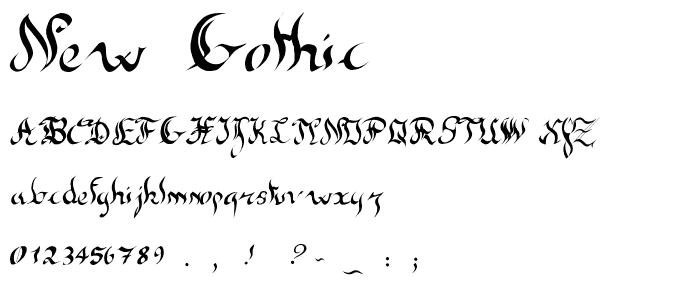 New Gothic
ABCDEFGHIJKLMNOPQRSTUVW XYZ
abcdefghijklmnopqrstuvwxyz
0123456789 . , ! ? ~ _ : ;